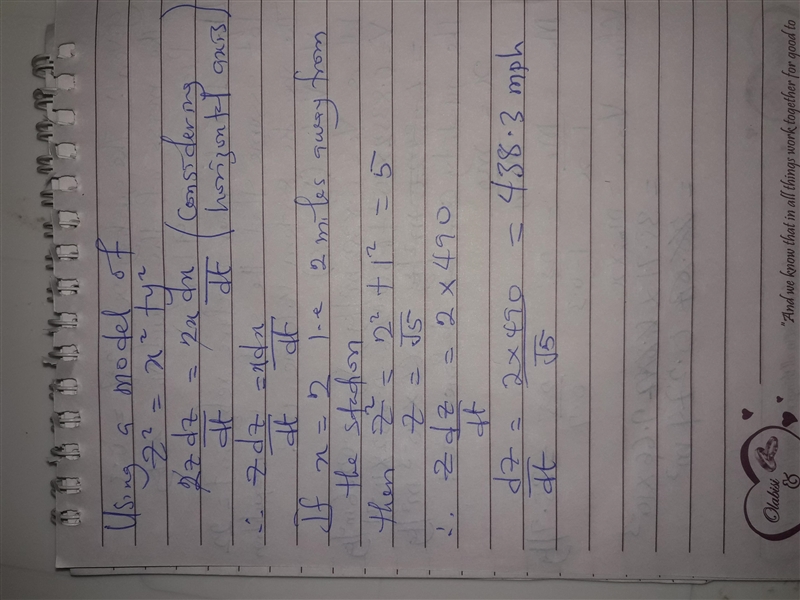 Using a model of
z² = x² + y²
2z dz/dt = 2x dx/dt (Considering horizontal axis)
∴ z dz/dt = x dx/dt
If x = 2 i.e 2 miles away from
the station
then z² = 2² + 1² = 5
z = √5
∴ z dz/dt = 2 × 490
dz/dt = 2 × 490/√5 = 438.3 mph
"And we know that in all things work together for good to
Olabisi
&